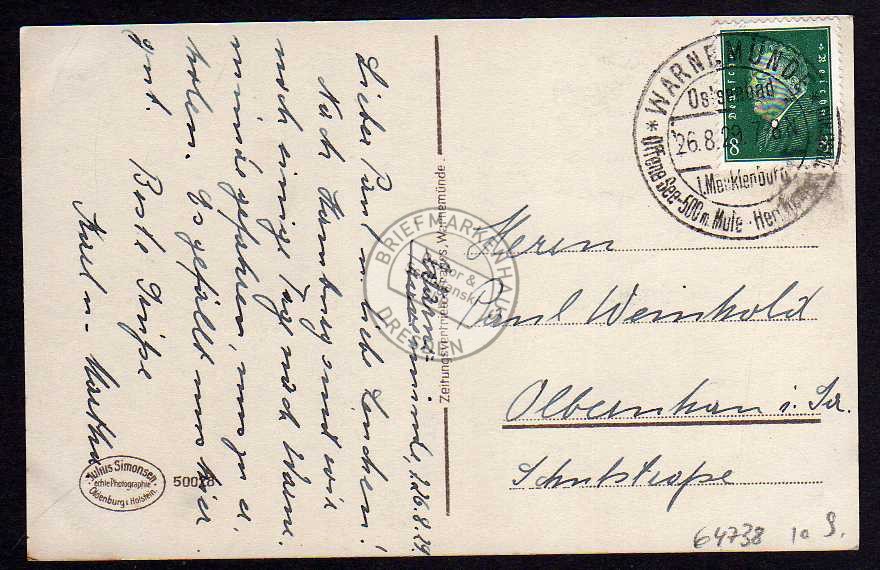 Warnemünde, 26.8.29.
Lieber Paul u. liebe Lenchen!
Nach Hamburg sind wir
noch einige Tage nach Warne-
münde gefahren, uns zu er-
holen. Es gefällt uns hier
gut. Beste Grüße
Karl u. Martha
Julius Simonsen
echte Photographie
Oldenburg i. Holstein.
50028
Zeitungsvertrieb Warnemünde.
BRIEFMARKENHAUS
DRESDEN
* WARNEMÜNDE
Ostseebad
26.8.29.7
i. Mecklenburg
Offene See-500 m. Mole
Deutsches Reich
8
Herrn
Paul Weinhold
Olbernhau i. Sa.
Schulstraße
64738 10 S.